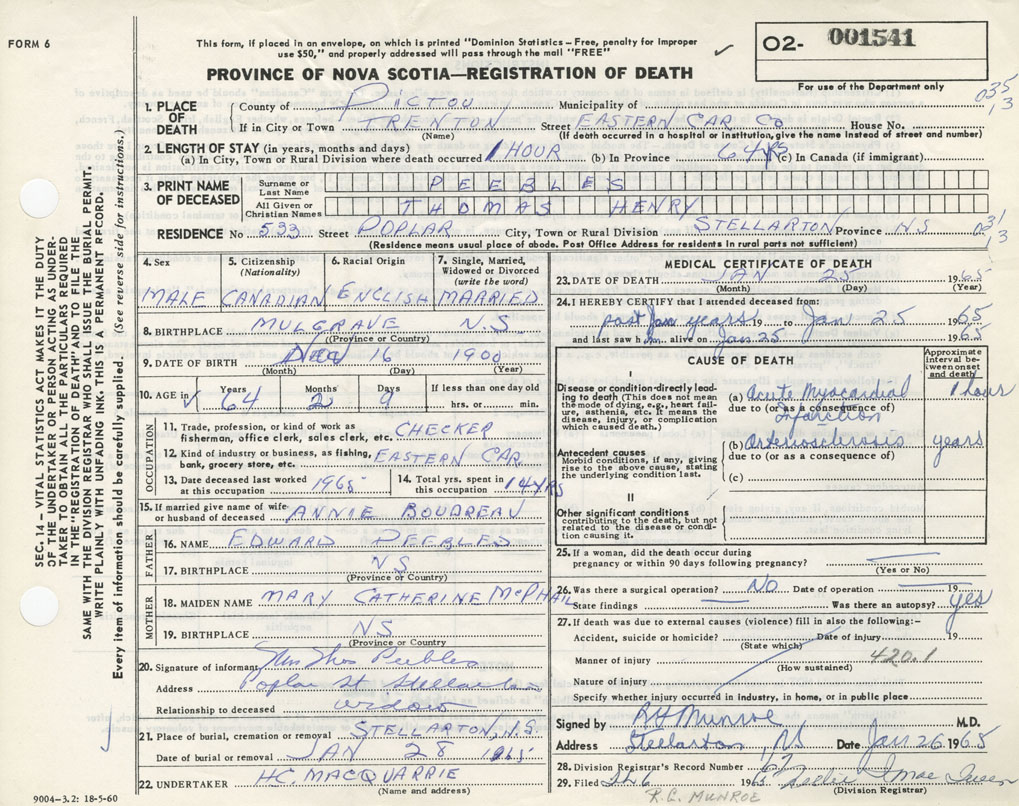 FORM 6
This form, if placed in an envelope, on which is printed "Dominion Statistics – Free, penalty for improper
use $50," and properly addressed will pass through the mail "FREE"
O2- 001541
For use of the Department only
PROVINCE OF NOVA SCOTIA—REGISTRATION OF DEATH
035
13
1. PLACE OF DEATH
County of PICTOU Municipality of
If in City or Town TRENTON Street EASTERN CAR Co House No.
(Name) (If death occurred in a hospital or institution, give the name instead of street and number)
2. LENGTH OF STAY (in years, months and days)
(a) In City, Town or Rural Division where death occurred 1 HOUR (b) In Province 64 YRS (c) In Canada (if immigrant)
3. PRINT NAME OF DECEASED
Surname or Last Name PEEBLES
All Given or Christian Names THOMAS HENRY
RESIDENCE No 533 Street POPLAR City, Town or Rural Division STELLARTON Province N S
031
13
(Residence means usual place of abode. Post Office Address for residents in rural parts not sufficient)
4. Sex
MALE
5. Citizenship (Nationality)
CANADIAN
6. Racial Origin
ENGLISH
7. Single, Married, Widowed or Divorced (write the word)
MARRIED
8. BIRTHPLACE MULGRAVE N.S
(Province or Country)
9. DATE OF BIRTH 16 1900
(Month) (Day) (Year)
10. AGE in Years 64 Months 2 Days 9 If less than one day old
hrs. or min.
OCCUPATION
11. Trade, profession, or kind of work as
fisherman, office clerk, sales clerk, etc. CHECKER
12. Kind of industry or business, as fishing,
bank, grocery store, etc. EASTERN CAR
13. Date deceased last worked
at this occupation 1965
14. Total yrs. spent in
this occupation 14 YRS
15. If married give name of wife
or husband of deceased ANNIE BOUDREAU
FATHER
16. NAME EDWARD PEEBLES
17. BIRTHPLACE NS
(Province or Country)
MOTHER
18. MAIDEN NAME MARY CATHERINE McPHAIL
19. BIRTHPLACE NS
(Province or Country
20. Signature of informant Mrs Thos Peebles
Address Poplar St Stellarton
Relationship to deceased widow
21. Place of burial, cremation or removal STELLARTON, N.S.
Date of burial or removal JAN 28 1965
22. UNDERTAKER H.C. MACQUARRIE
(Name and address)
9004-3.2: 18-5-60
MEDICAL CERTIFICATE OF DEATH
23. DATE OF DEATH JAN 25 1965
(Month) (Day) (Year)
24. I HEREBY CERTIFY that I attended deceased from:
past few years 19 to Jan 25 1965
and last saw him alive on Jan 25 1965
CAUSE OF DEATH
Approximate interval between onset and death
I
Disease or condition directly leading to death (This does not mean the mode of dying, e.g., heart failure, asthenia, etc. It means the disease, injury, or complication which caused death.)
(a) Acute Myocardial 1 hour
due to (or as a consequence of)
Infarction
Antecedent causes
Morbid conditions, if any, giving rise to the above cause, stating the underlying condition last.
(b) Arteriosclerosis years
due to (or as a consequence of)
(c)
II
Other significant conditions
contributing to the death, but not related to the disease or condition causing it.
25. If a woman, did the death occur during
pregnancy or within 90 days following pregnancy?
(Yes or No)
26. Was there a surgical operation? NO Date of operation 19
State findings Was there an autopsy? yes
27. If death was due to external causes (violence) fill in also the following:–
Accident, suicide or homicide? Date of injury 19
(State which)
Manner of injury 420.1
(How sustained)
Nature of injury
Specify whether injury occurred in industry, in home, or in public place
Signed by R H Munroe M.D.
Address Stellarton, NS Date Jan 26 1965
28. Division Registrar's Record Number 67
29. Filed 1965
(Division Registrar)
R.C. MUNROE
SEC. 14 – VITAL STATISTICS ACT MAKES IT THE DUTY
OF THE UNDERTAKER OR PERSON ACTING AS UNDER-
TAKER TO OBTAIN ALL THE PARTICULARS REQUIRED
IN THE "REGISTRATION OF DEATH" AND TO FILE THE
SAME WITH THE DIVISION REGISTRAR WHO SHALL ISSUE THE BURIAL PERMIT.
WRITE PLAINLY WITH UNFADING INK. THIS IS A PERMANENT RECORD.
Every item of information should be carefully supplied. (See reverse side for instructions.)